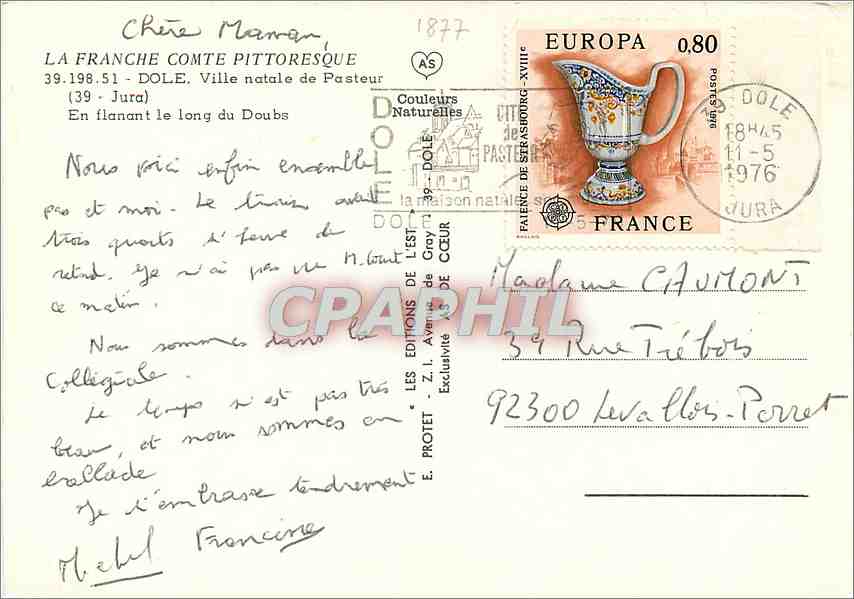 Chère Maman,
1877
LA FRANCHE COMTE PITTORESQUE
39.198.51 - DOLE. Ville natale de Pasteur
(39 - Jura)
En flanant le long du Doubs
AS
Couleurs
Naturelles
Nous voici enfin ensemble
pas et moi. Le train avait
trois quarts d'heure de
retard. Je n'ai pas vu M. Court
ce matin.
Nous sommes dans la
Collégiale.
Le temps n'est pas très
beau, et nous sommes en
ballade
Je t'embrasse tendrement
Michel Francine
" LES EDITIONS DE L'EST "
E. PROTET - Z. I. Avenue de Gray 39 - DOLE
Exclusivité AS DE CŒUR
DOLE
CITE
de
PASTEUR
la maison natale
DOLE
EUROPA 0,80
POSTES 1976
FAIENCE DE STRASBOURG - XVIIIe
FRANCE
39 DOLE
18H45
11-5
1976
JURA
Madame CAUMONT
39 Rue Trébois
92300 Levallois-Perret
CPAPHIL